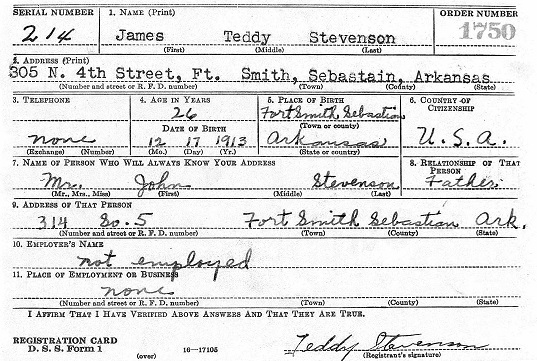 SERIAL NUMBER 1. NAME (Print) ORDER NUMBER
214 James Teddy Stevenson 1750
(First) (Middle) (Last)
2. ADDRESS (Print)
305 N. 4th Street, Ft. Smith, Sebastain, Arkansas
(Number and street or R. F. D. number) (Town) (County) (State)
3. TELEPHONE 4. AGE IN YEARS 5. PLACE OF BIRTH 6. COUNTRY OF CITIZENSHIP
26 Fort Smith Sebastian
DATE OF BIRTH (Town or county)
none 12 17 1913 Arkansas U.S.A.
(Exchange) (Number) (Mo.) (Day) (Yr.) (State or country)
7. NAME OF PERSON WHO WILL ALWAYS KNOW YOUR ADDRESS 8. RELATIONSHIP OF THAT PERSON
Mr. John Stevenson Father
(Mr., Mrs., Miss) (First) (Middle) (Last)
9. ADDRESS OF THAT PERSON
314 So. 5 Fort Smith Sebastian Ark.
(Number and street or R. F. D. number) (Town) (County) (State)
10. EMPLOYER'S NAME
not employed
11. PLACE OF EMPLOYMENT OR BUSINESS
none
(Number and street or R. F. D. number) (Town) (County) (State)
I AFFIRM THAT I HAVE VERIFIED ABOVE ANSWERS AND THAT THEY ARE TRUE.
REGISTRATION CARD
D. S. S. Form 1 (over) 16—17105 Teddy Stevenson
(Registrant's signature)